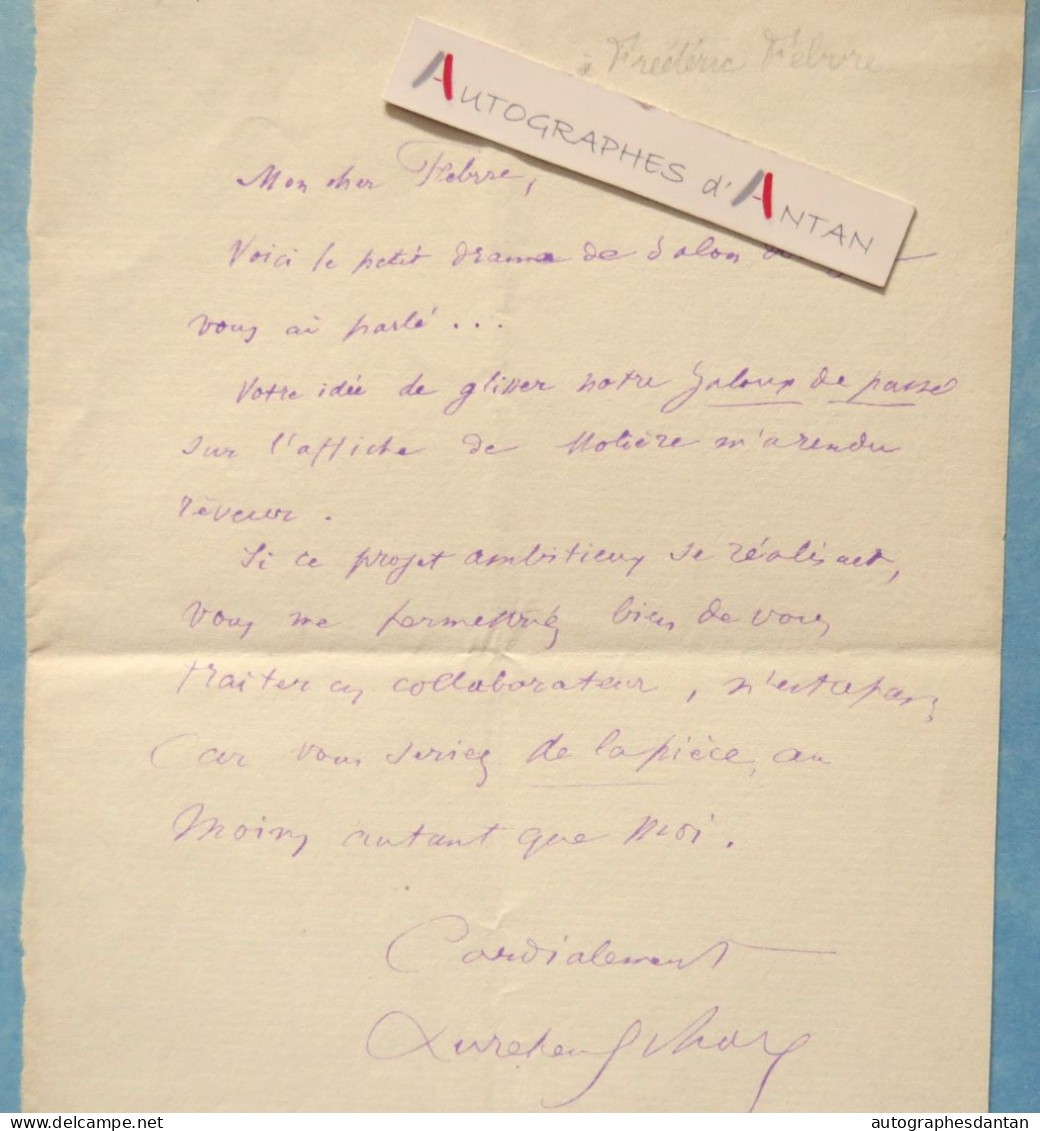 à Frédéric Febvre
AUTOGRAPHES d'ANTAN
Mon cher Febvre,
Voici le petit drame de Salon
vous ai parlé ...
Votre idée de glisser notre Jaloux de passé
sur l'affiche de Molière m'a rendu
rêveur.
Si ce projet ambitieux se réalisait,
vous me permettrez bien de vous
traiter en collaborateur, n'est-ce pas,
Car vous seriez de la pièce, au
moins autant que moi.
Cordialement
Aurélien Scholl
autographesdantan